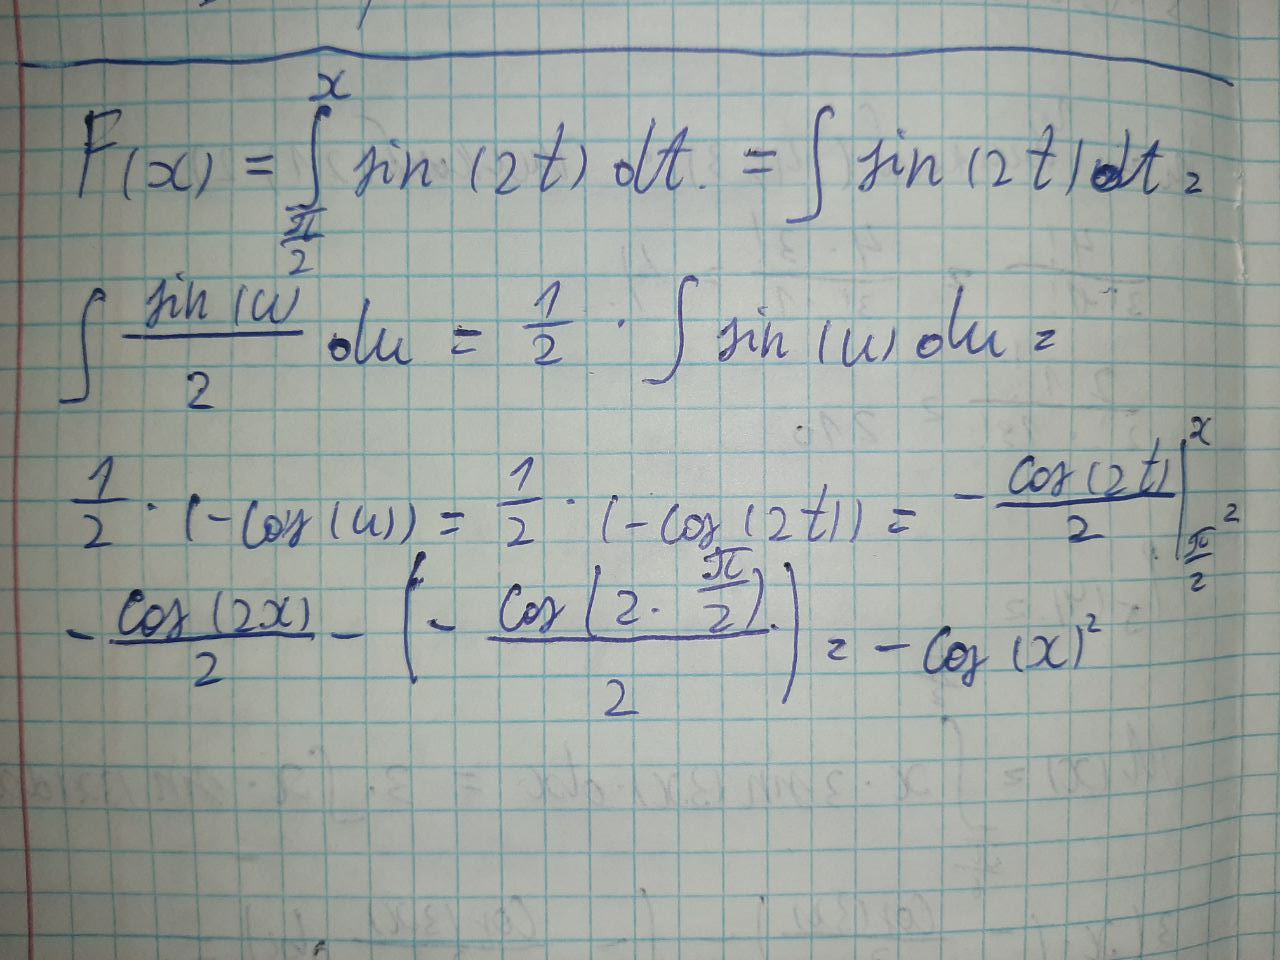 F(x) = ∫_{π/2}^{x} sin (2t) dt. = ∫ sin (2t) dt =
∫ sin (u) / 2 du = 1/2 · ∫ sin (u) du =
1/2 · (-cos (u)) = 1/2 · (-cos (2t)) = - cos (2t) / 2 |_{π/2}^{x} =
- cos (2x) / 2 - (- cos (2 · π/2) / 2) = - cos (x)²